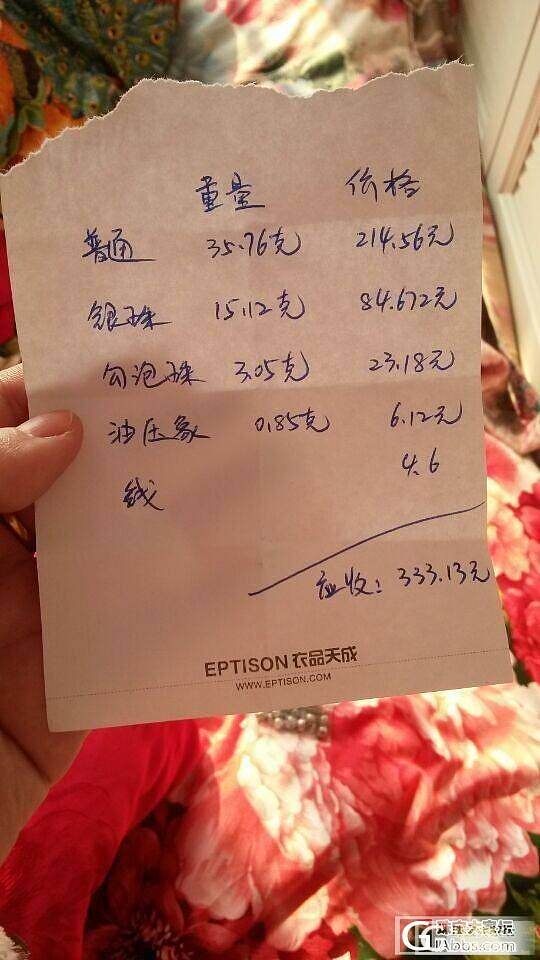 重量 价格
普通 35.76克 214.56元
银珠 15.12克 84.672元
勾泡珠 3.05克 23.18元
油压象 0.85克 6.12元
线 4.6
应收：333.13元
EPTISON 衣品天成
WWW.EPTISON.COM